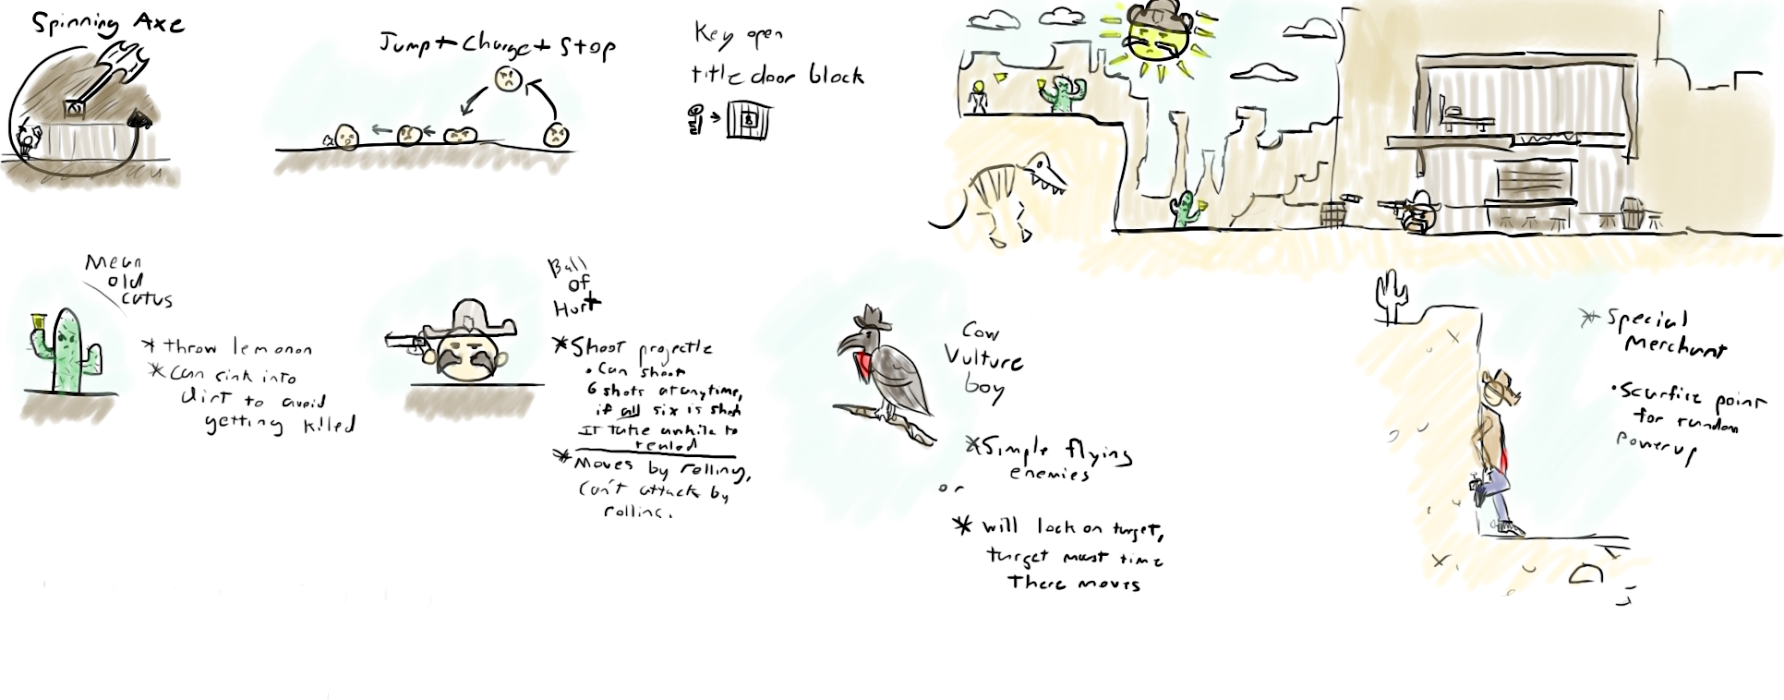 Spinning Axe
Jump + Charge + Stop
Key open
title door block
Mean
old
catus
* throw lemonon
* Can sink into
dirt to avoid
getting killed
Ball
of
Hurt
* Shoot projectle
• Can shoot
6 shots at anytime,
if all six is shot
It take awhile to
reload
* Moves by rolling,
Can't attack by
rolling.
Cow
Vulture
boy
* Simple flying
enemies
or
* will lock on target,
target must time
There moves
* Special
Merchant
• Scarfice point
for random
powerup